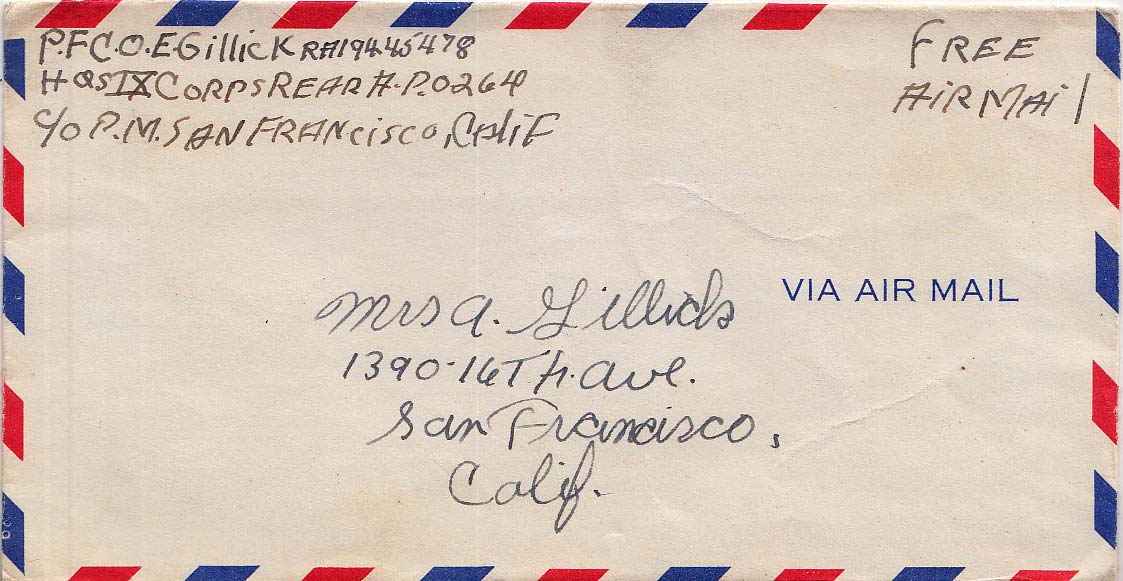 P.F.C. O.E Gillick RA19445478
HQS IX CORPS REAR A.P.O 264
C/O P.M. SAN FRANCISCO, CALIF
FREE
AIR MAIL
VIA AIR MAIL
Mrs A. Gillick
1390-16TH. Ave.
San Francisco,
Calif.